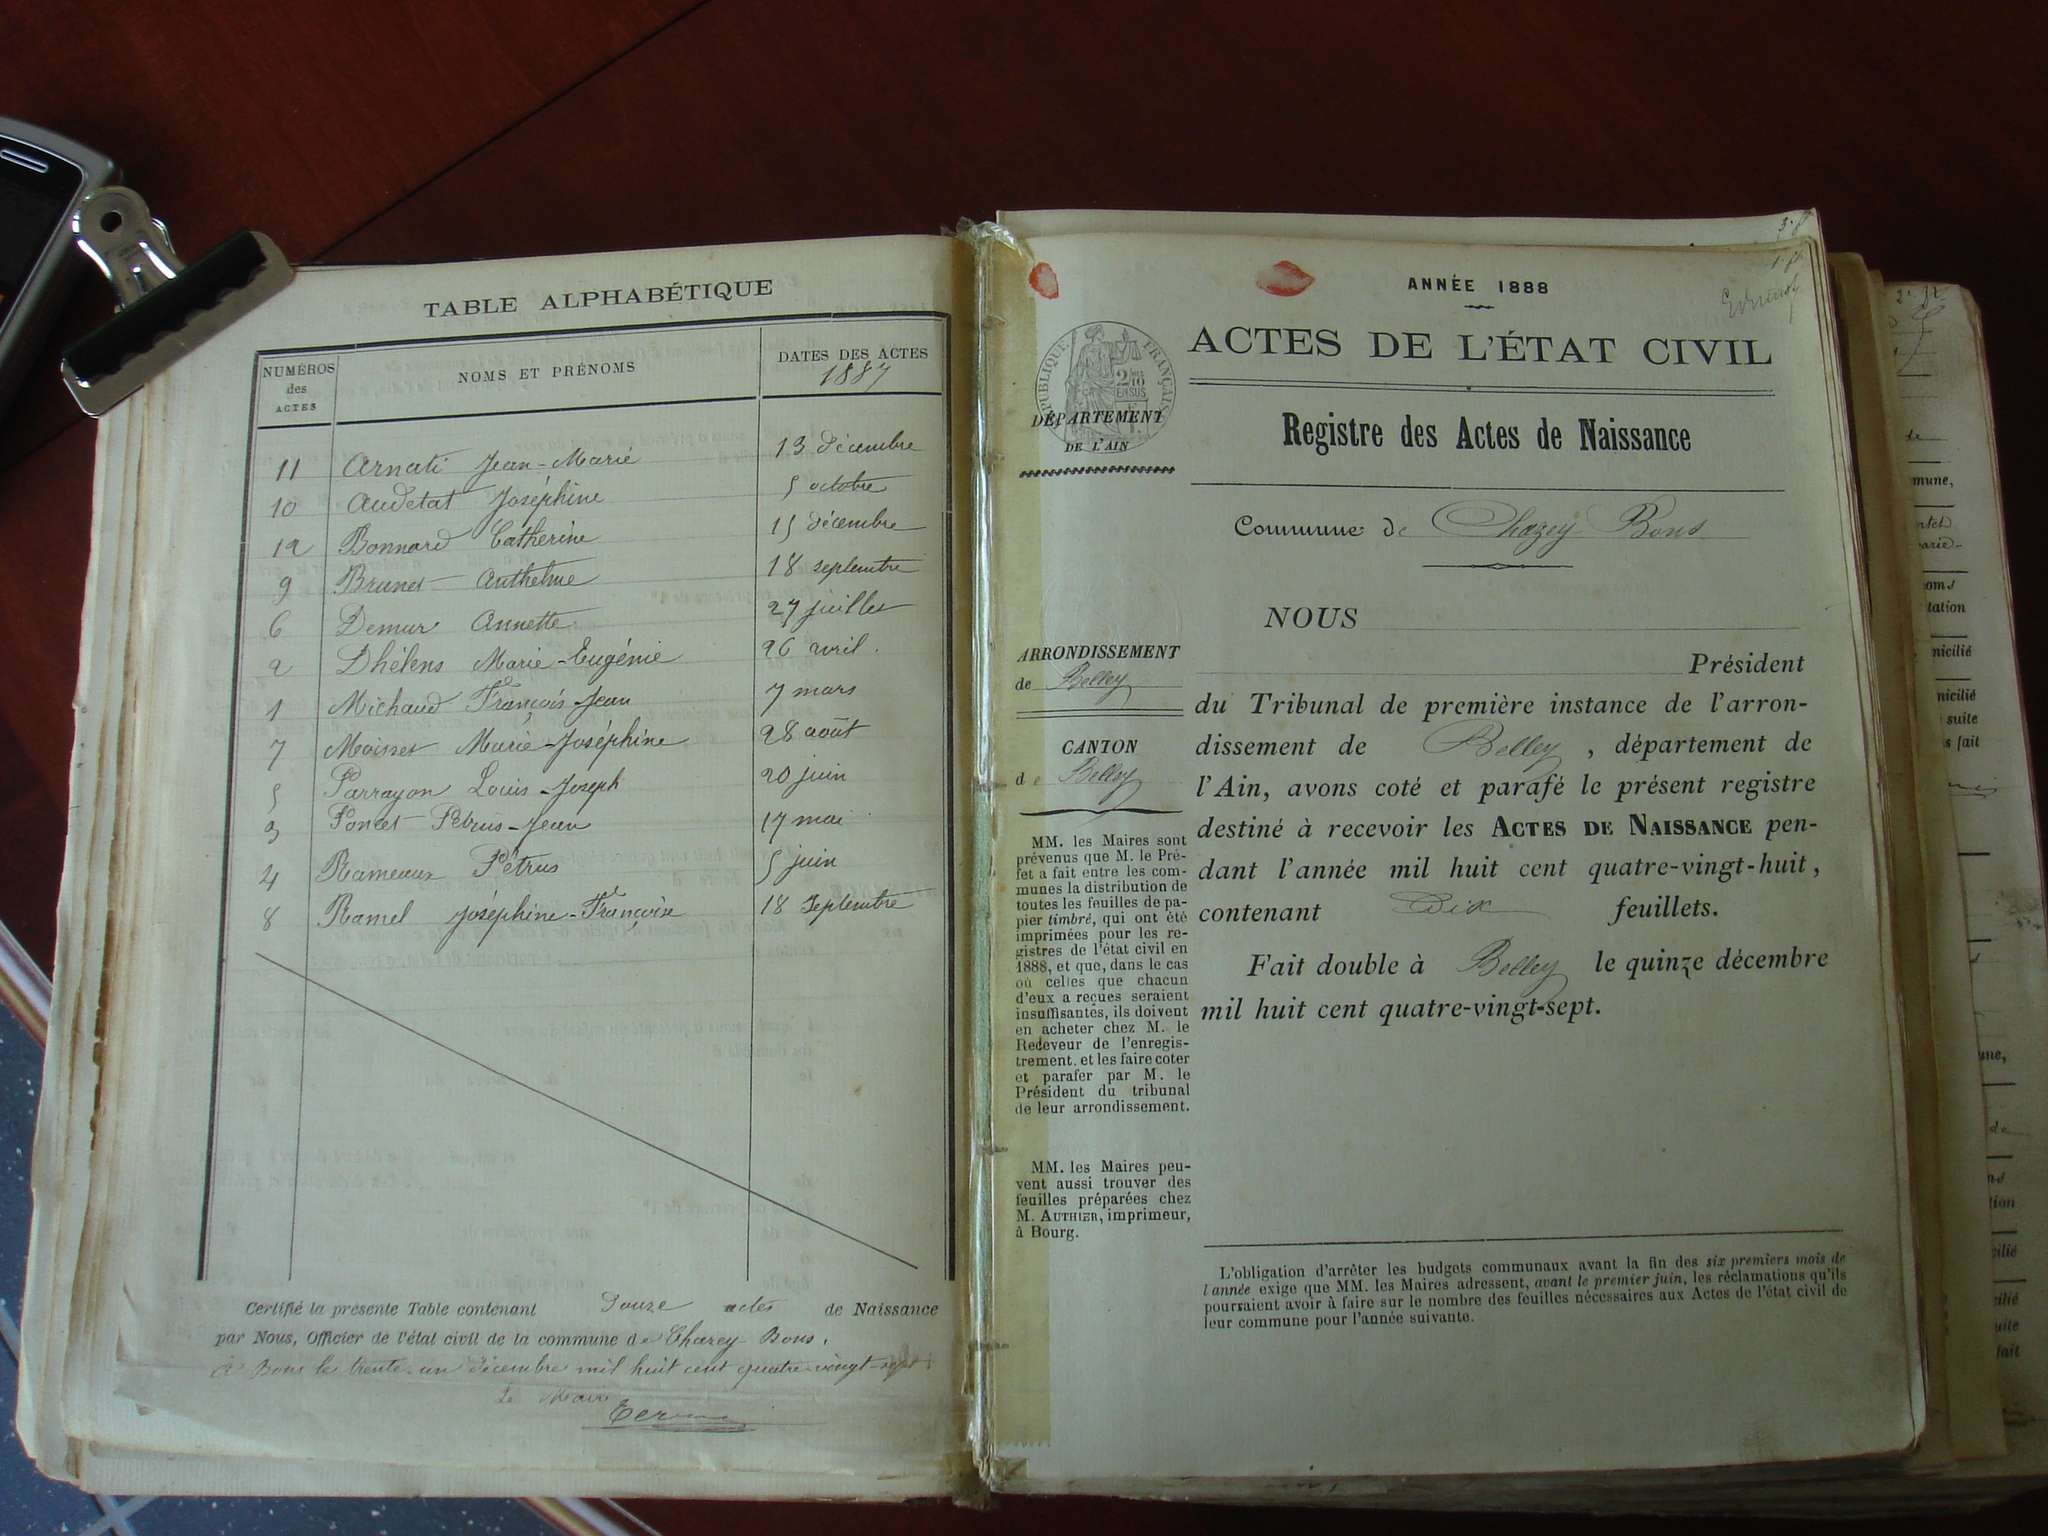 TABLE ALPHABÉTIQUE
NUMÉROS des ACTES
NOMS ET PRÉNOMS
DATES DES ACTES
1887
11 Arnati Jean-Marie 13 décembre
10 Audetat Joséphine 5 octobre
12 Bonnard Catherine 15 décembre
9 Brunet Anthelme 18 septembre
6 Demur Annette 27 juillet
2 Dhélens Marie-Eugénie 26 avril
1 Michaud François-Jean 7 mars
7 Moisset Marie-Joséphine 28 août
5 Parrayon Louis-Joseph 20 juin
3 Poncet Pétrus-Jean 17 mai
4 Rameaux Pétrus 5 juin
8 Ramel Joséphine-Françoise 18 septembre
Certifié la présente Table contenant Douze actes de Naissance
par Nous, Officier de l'état civil de la commune de Chazey Bons,
à Bons le trente-un décembre mil huit cent quatre-vingt-sept.
Le Maire
ANNÉE 1888
ACTES DE L'ÉTAT CIVIL
RÉPUBLIQUE FRANÇAISE
DÉPARTEMENT
DE L'AIN
Registre des Actes de Naissance
Commune de Chazey Bons
ARRONDISSEMENT
de Belley
CANTON
de Belley
MM. les Maires sont
prévenus que M. le Pré-
fet a fait entre les com-
munes la distribution de
toutes les feuilles de pa-
pier timbré, qui ont été
imprimées pour les re-
gistres de l'état civil en
1888, et que, dans le cas
où celles que chacun
d'eux a reçues seraient
insuffisantes, ils doivent
en acheter chez M. le
Receveur de l'enregis-
trement, et les faire coter
et parafer par M. le
Président du tribunal
de leur arrondissement.
MM. les Maires peu-
vent aussi trouver des
feuilles préparées chez
M. AUTHIER, imprimeur,
à Bourg.
NOUS
Président
du Tribunal de première instance de l'arron-
dissement de Belley, département de
l'Ain, avons coté et parafé le présent registre
destiné à recevoir les ACTES DE NAISSANCE pen-
dant l'année mil huit cent quatre-vingt-huit,
contenant Dix feuillets.
Fait double à Belley le quinze décembre
mil huit cent quatre-vingt-sept.
L'obligation d'arrêter les budgets communaux avant la fin des six premiers mois de
l'année exige que MM. les Maires adressent, avant le premier juin, les réclamations qu'ils
pourraient avoir à faire sur le nombre des feuilles nécessaires aux Actes de l'état civil de
leur commune pour l'année suivante.